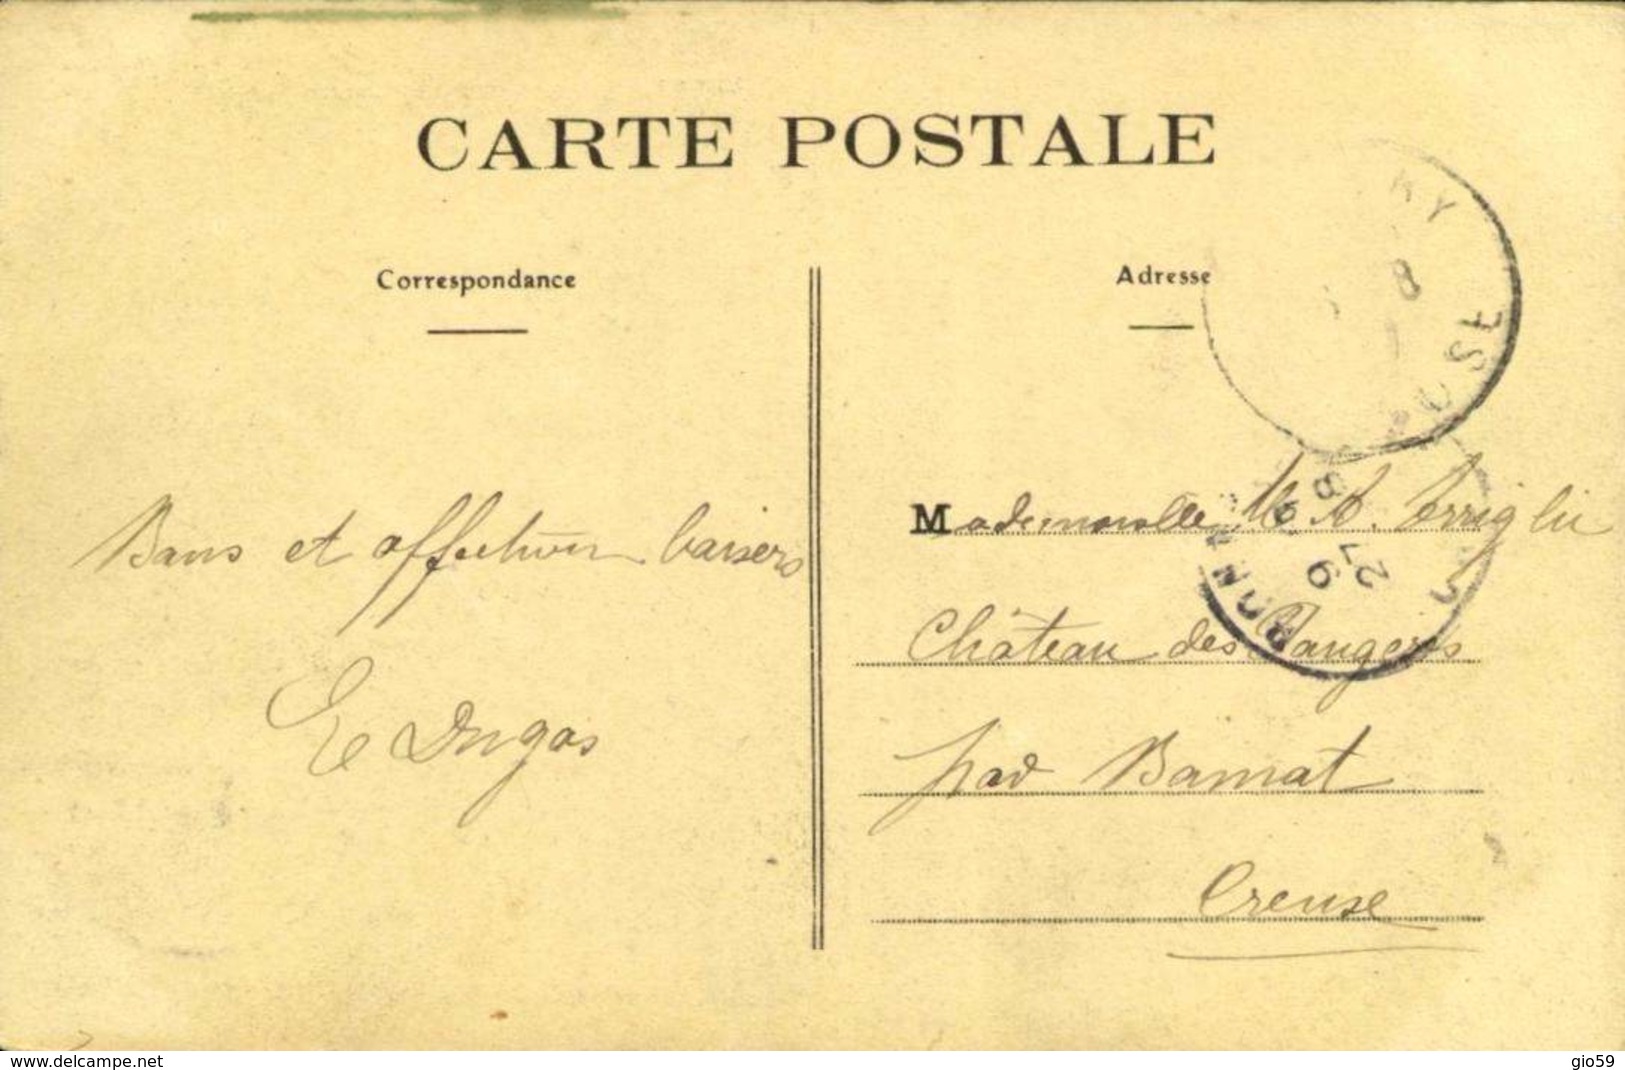 CARTE POSTALE
Correspondance
Adresse
Bons et affectueux baisers
E Dugas
Mademoiselle M A.
Château des
par Barnat
Creuse
CREUSE
27
www.delcampe.net
gio59